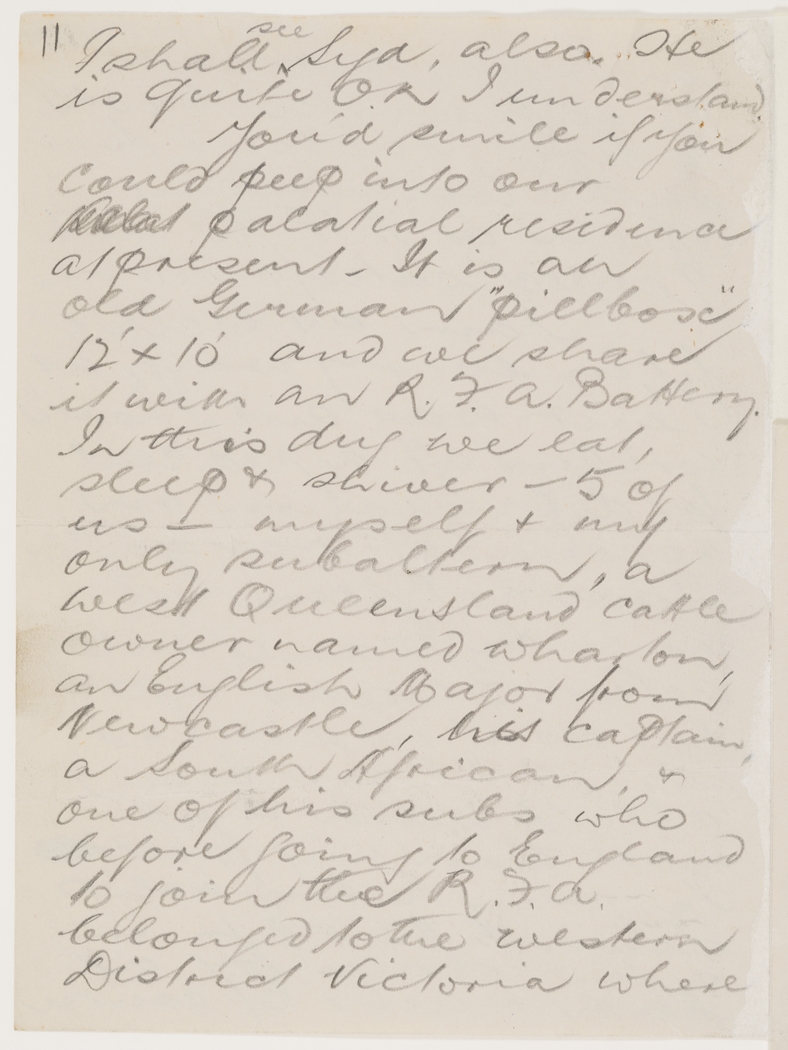 11
I shall see Syd, also. He
is quite OK I understand.
You'd smile if you
could peep into our
palatial residence
at present - It is an
old German "pillbox"
12' x 10' and we share
it with an R.F.A. Battery.
In this dug we eat,
sleep & shiver - 5 of
us - myself & my
only subaltern, a
west Queensland cattle
owner named Wharton,
an English Major from
Newcastle, his captain,
a South African, &
one of his subs who
before going to England
to join the R.F.A.
belonged to the western
District Victoria where